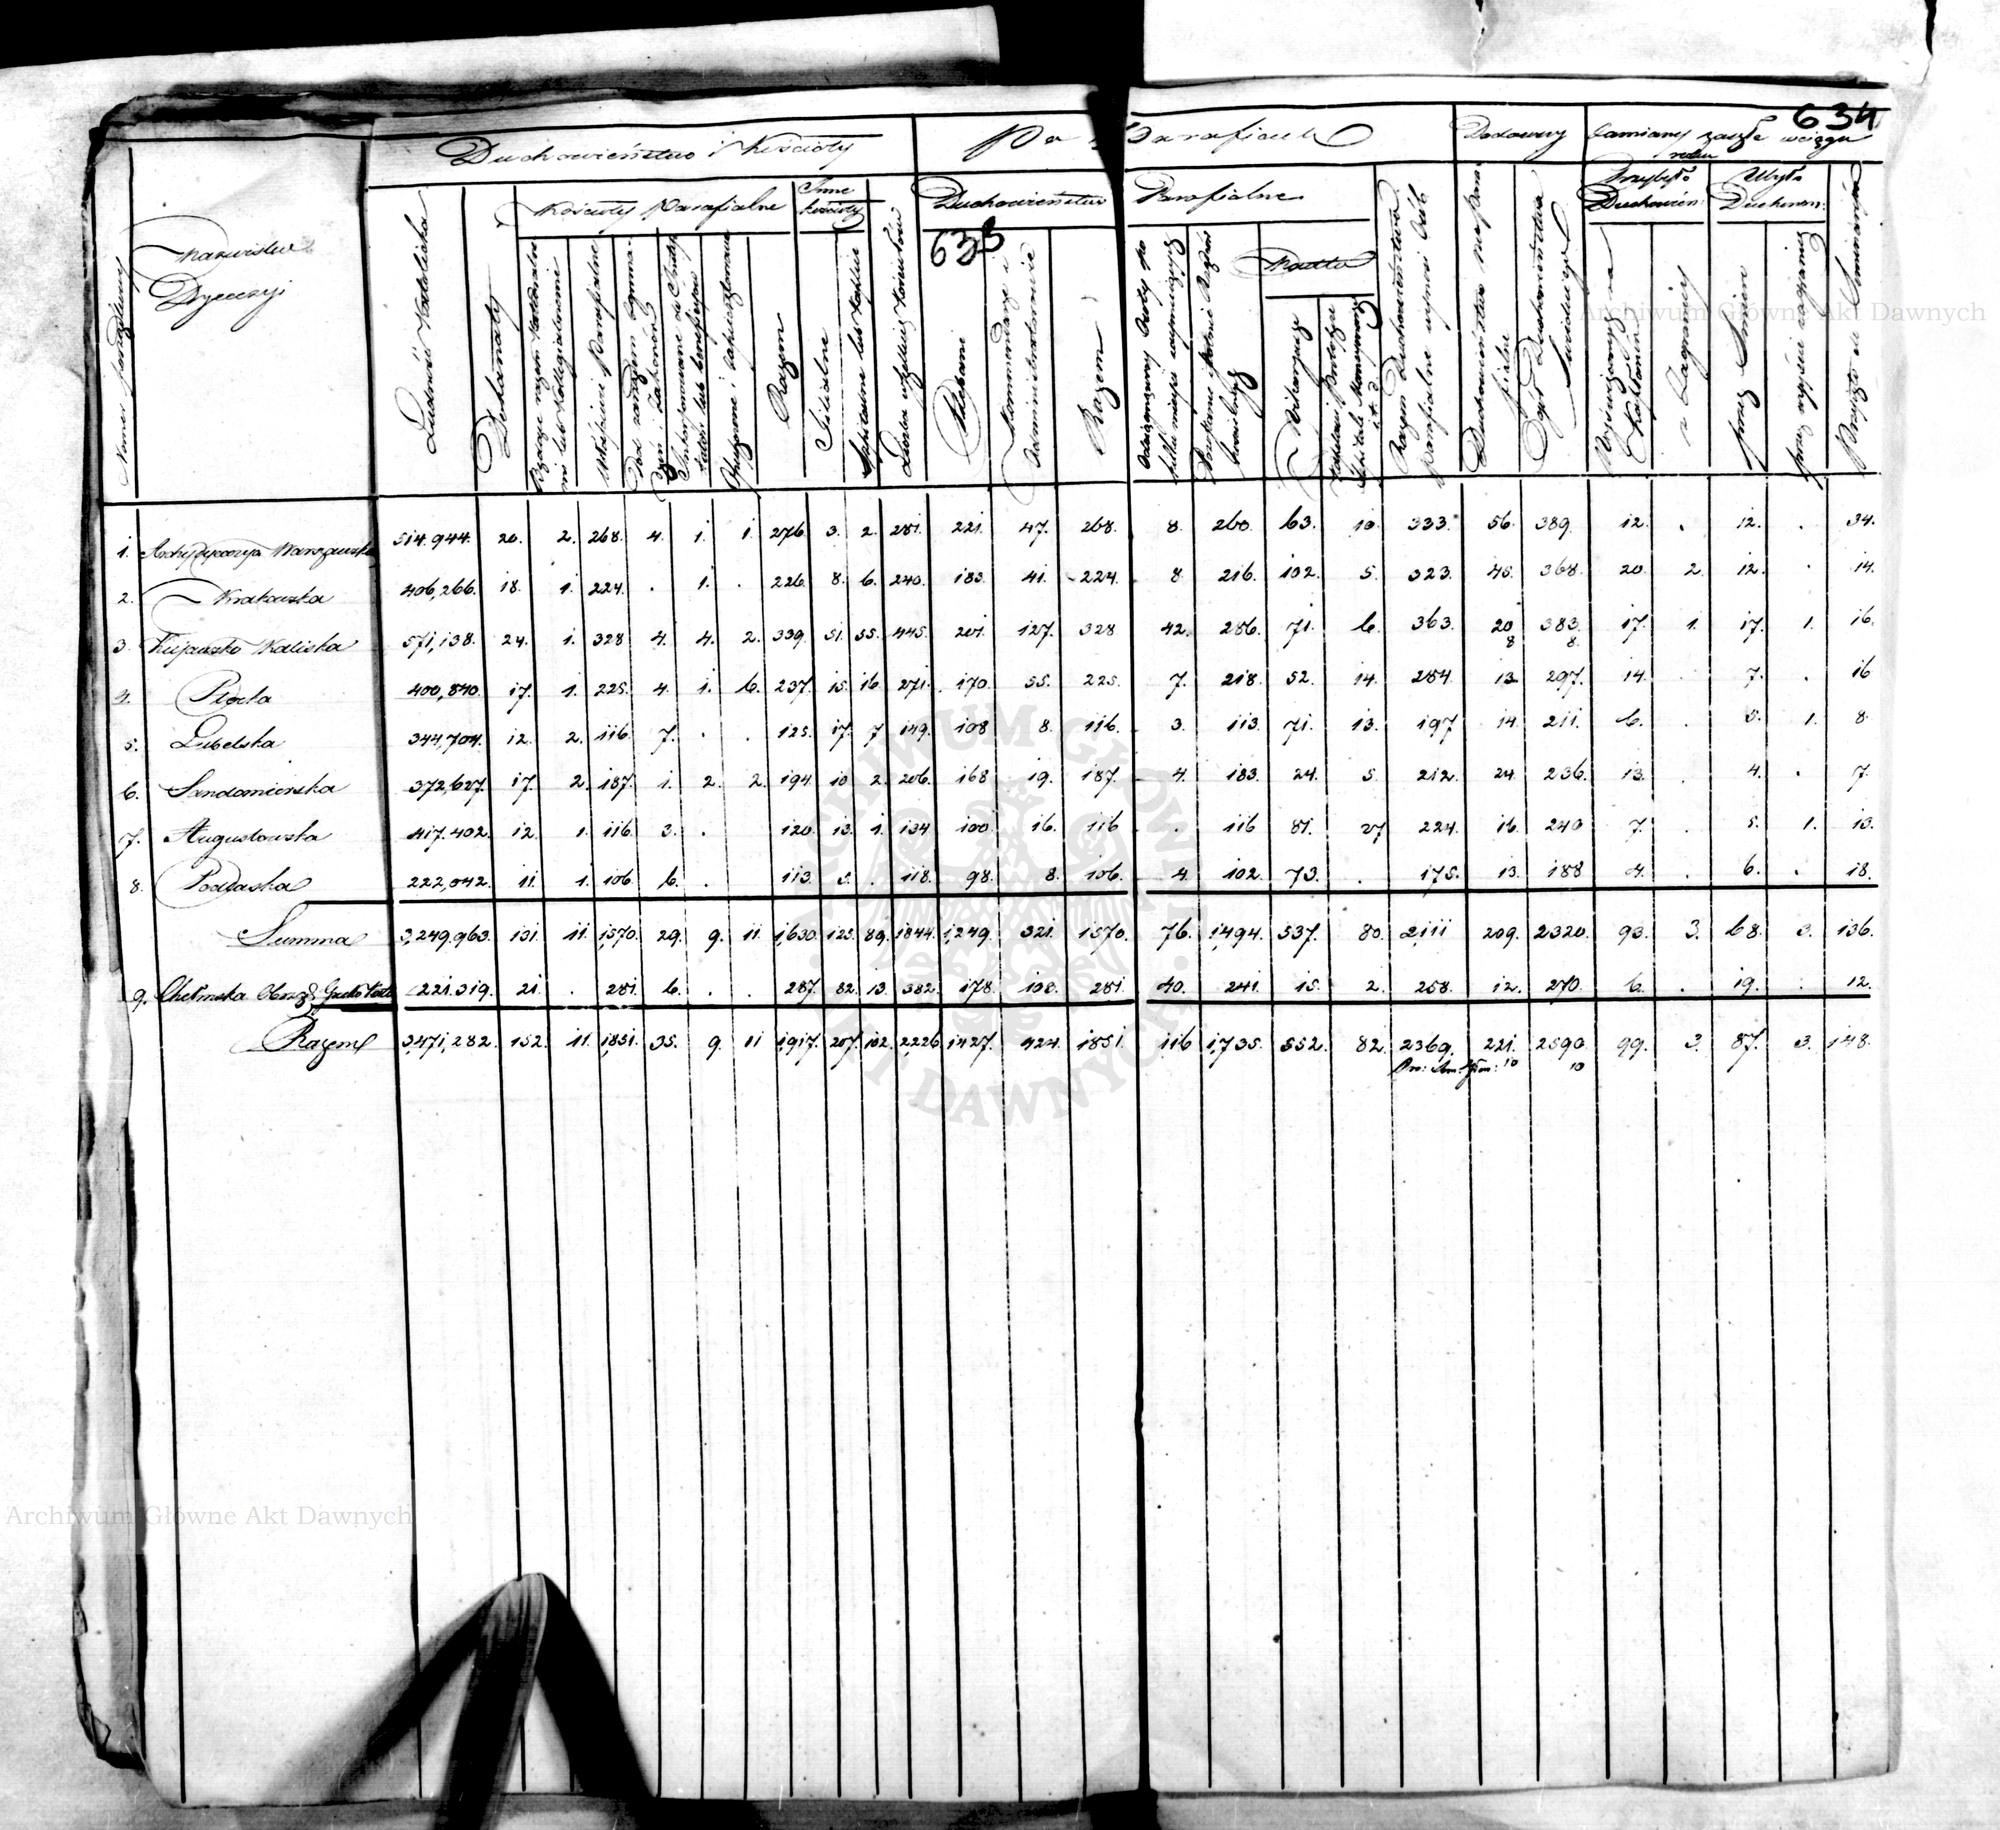 634
Duchowieństwo i Kościoły Po Parafiach Dodawszy Zamiany zaszłe wciągu roku
Kościoły Parafialne Inne Kościoły Duchowieństwo Parafialne Przybyło Duchowień: Ubyło Duchowień:
635
Numer porządkowy
Nazwiska Dyecezyi
Ludność Katolicka
Dekanaty
Właściwi Parafialne
Razem
Filialne
Szpitalne lub Kaplice
Plebani
Kommendarze i Administratorowie
Razem
Nadto
Wikaryusze
Razem Duchowieństwa Parafialne
Ogół Duchowieństwa Świeckiego
z Zagranicy
przez Śmierć
1. Archidyecezya Warszawska 514.944. 20. 2. 268. 4. 1. 1. 276. 3. 2. 281. 221. 47. 268. 8. 260. 63. 10. 333. 56. 389. 12. . 12. . 34.
2. Krakowska 406,266. 18. 1. 224. . 1. . 226. 8. 6. 240. 183. 41. 224. 8. 216. 102. 5. 323. 45. 368. 20. 2. 12. . 14.
3. Kujawsko Kaliska 571,138. 24. 1. 328. 4. 4. 2. 339. 51. 55. 445. 201. 127. 328. 42. 286. 71. 6. 363. 20. 383. 17. 1. 17. 1. 16.
8 8.
4. Płocka 400,840. 17. 1. 225. 4. 1. 6. 237. 15. 16. 271. 170. 55. 225. 7. 218. 52. 14. 284. 13. 297. 14. . 7. . 16
5. Lubelska 344,704. 12. 2. 116. 7. . . 125. 17. 7. 149. 108. 8. 116. 3. 113. 71. 13. 197. 14. 211. 6. . 5. 1. 8.
6. Sandomierska 372,627. 17. 2. 187. 1. 2. 2. 194. 10. 2. 206. 168. 19. 187. 4. 183. 24. 5. 212. 24. 236. 13. . 4. . 7.
7. Augustowska 417.402. 12. 1. 116. 3. . 120. 13. 1. 134. 100. 16. 116. . 116. 81. 27. 224. 16. 240. 7. . 5. 1. 13.
8. Podlaska 222,042. 11. 1. 106. 6. . 113. 5. . 118. 98. 8. 106. 4. 102. 73. . 175. 13. 188. 4. . 6. . 18.
Summa 3,249,963. 131. 11. 1,570. 29. 9. 11. 1,630. 125. 89. 1844. 1,249. 321. 1570. 76. 1,494. 537. 80. 2,111. 209. 2320. 93. 3. 68. 3. 136.
9. Chełmska Obrząd: 221.319. 21. . 281. 6. . . 287. 82. 13. 382. 178. 103. 281. 40. 241. 15. 2. 258. 12. 270. 6. . 19. . 12.
Razem 3,471,282. 152. 11. 1,851. 35. 9. 11. 1,917. 207. 102. 2,226. 1427. 424. 1851. 116. 1,735. 552. 82. 2369. 221. 2590. 99. 3. 87. 3. 148.
10 10
Archiwum Główne Akt Dawnych
ARCHIWUM GŁÓWNE AKT DAWNYCH
Archiwum Główne Akt Dawnych